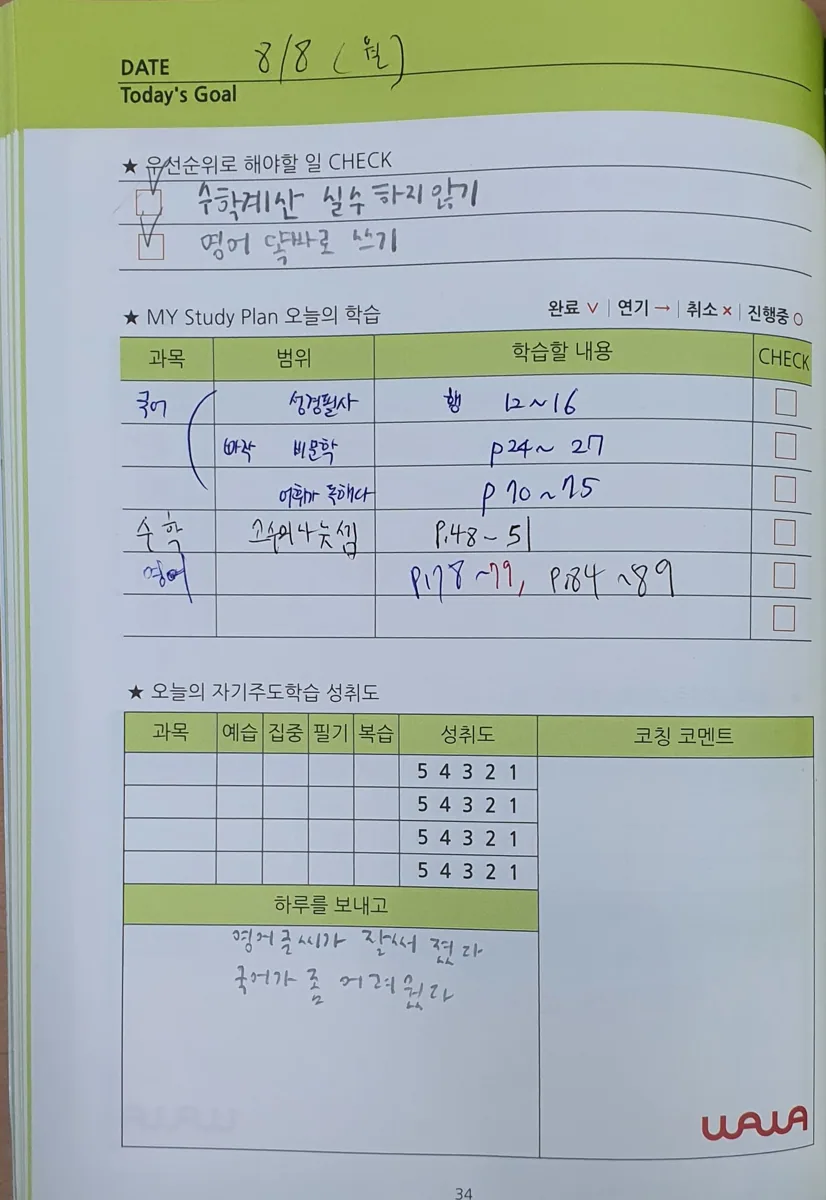 DATE 8/8 (월)
Today's Goal
★ 우선순위로 해야할 일 CHECK
수학계산 실수 하지 않기
영어 똑바로 쓰기
★ MY Study Plan 오늘의 학습 완료 ∨ | 연기 → | 취소 × | 진행중 ○
과목 범위 학습할 내용 CHECK
국어 성경필사 행 12~16
비문학 p24~ 27
어휘가 독해다 p 70~75
수학 고수의 나눗셈 P.48~51
영어 P.78~79, P.84~89
★ 오늘의 자기주도학습 성취도
과목 예습 집중 필기 복습 성취도 코칭 코멘트
5 4 3 2 1
5 4 3 2 1
5 4 3 2 1
5 4 3 2 1
하루를 보내고
영어글씨가 잘써 졌다
국어가 좀 어려웠다
WAWA
34